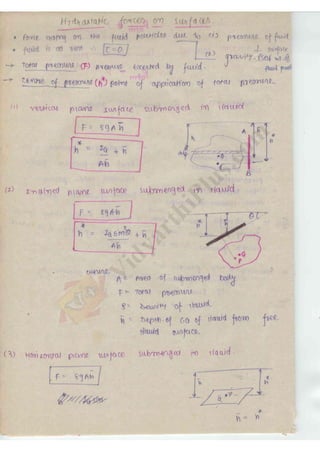 Hydrostatic forces on surfaces
• Force acting on the fluid particles due to (1) pressure of fluid
• fluid is at rest τ = 0
(2) gravity
→ Total pressure (F) exerted by fluid.
→ Centre of pressure (h*) point of application of total pressure
(1) vertical plane surface submerged in liquid
F = ρgAh̄
h* = IG / Ah̄ + h̄
(2) Inclined plane surface submerged in liquid
F = ρgAh̄
h* = IG sin²θ / Ah̄ + h̄
where
A = Area of submerged body
F = Total pressure
ρ = Density of liquid
h̄ = Depth of CG of liquid from free
liquid surface.
(3) Horizontal plane surface submerged in liquid
F = ρgAh̄
h̄ = h*